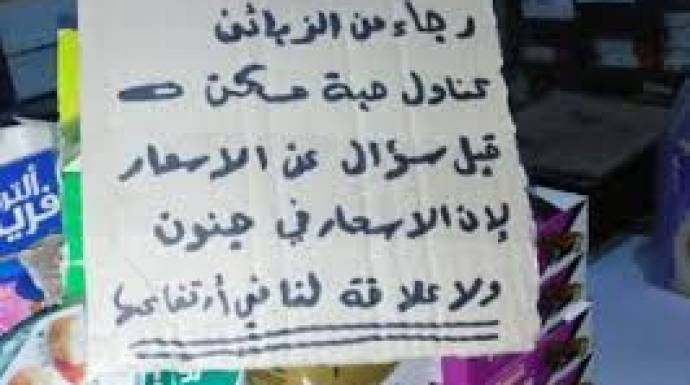 رجاء من الزبائن
تناول حبة مسكن
قبل سؤال عن الاسعار
لإن الاسعار في جنون
ولا علاقة لنا في أرتفاعها